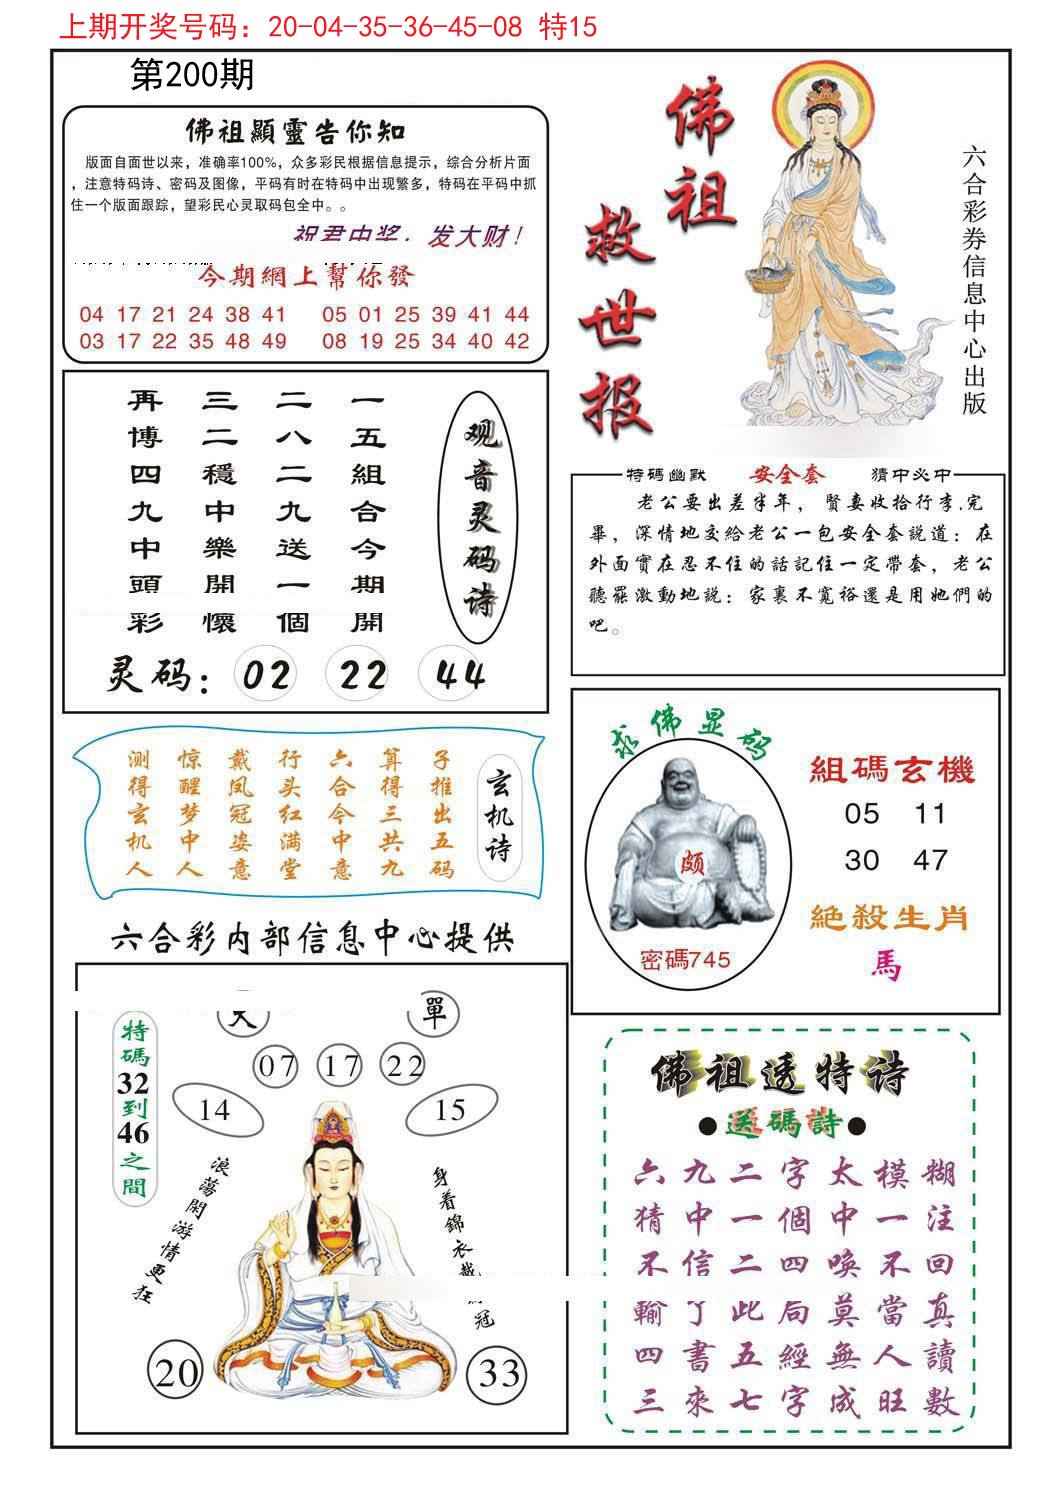 上期开奖号码：20-04-35-36-45-08 特15
第200期
佛祖顯靈告你知
版面自面世以来，准确率100%，众多彩民根据信息提示，综合分析片面
，注意特码诗、密码及图像，平码有时在特码中出现繁多，特码在平码中抓
住一个版面跟踪，望彩民心灵取码包全中。。
祝君中奖，发大财！
今期網上幫你發
04 17 21 24 38 41 05 01 25 39 41 44
03 17 22 35 48 49 08 19 25 34 40 42
佛祖
救世报
六合彩券信息中心出版
观音灵码诗
一五組合今期開
二八二九送一個
三二穩中樂開懷
再博四九中頭彩
灵码：02 22 44
特碼幽默 安全套 猜中必中
老公要出差半年，賢妻收拾行李.完
畢，深情地交給老公一包安全套説道：在
外面實在忍不住的話記住一定帶套，老公
聽罷激動地説：家裏不寬裕還是用她們的
吧。
玄机诗
子推出五码
算得三共九
六合今中意
行头红满堂
戴凤冠姿意
惊醒梦中人
测得玄机人
求佛显码
颇
密碼745
組碼玄機
05 11
30 47
絶殺生肖
馬
六合彩内部信息中心提供
單
特碼32到46之間
07 17 22
14 15
浪蕩閑游情更狂
身着錦衣戴冠
20 33
佛祖透特诗
●送碼詩●
六九二字太模糊
猜中一個中一注
不信二四唤不回
輸了此局莫當真
四書五經無人讀
三來七字成旺數